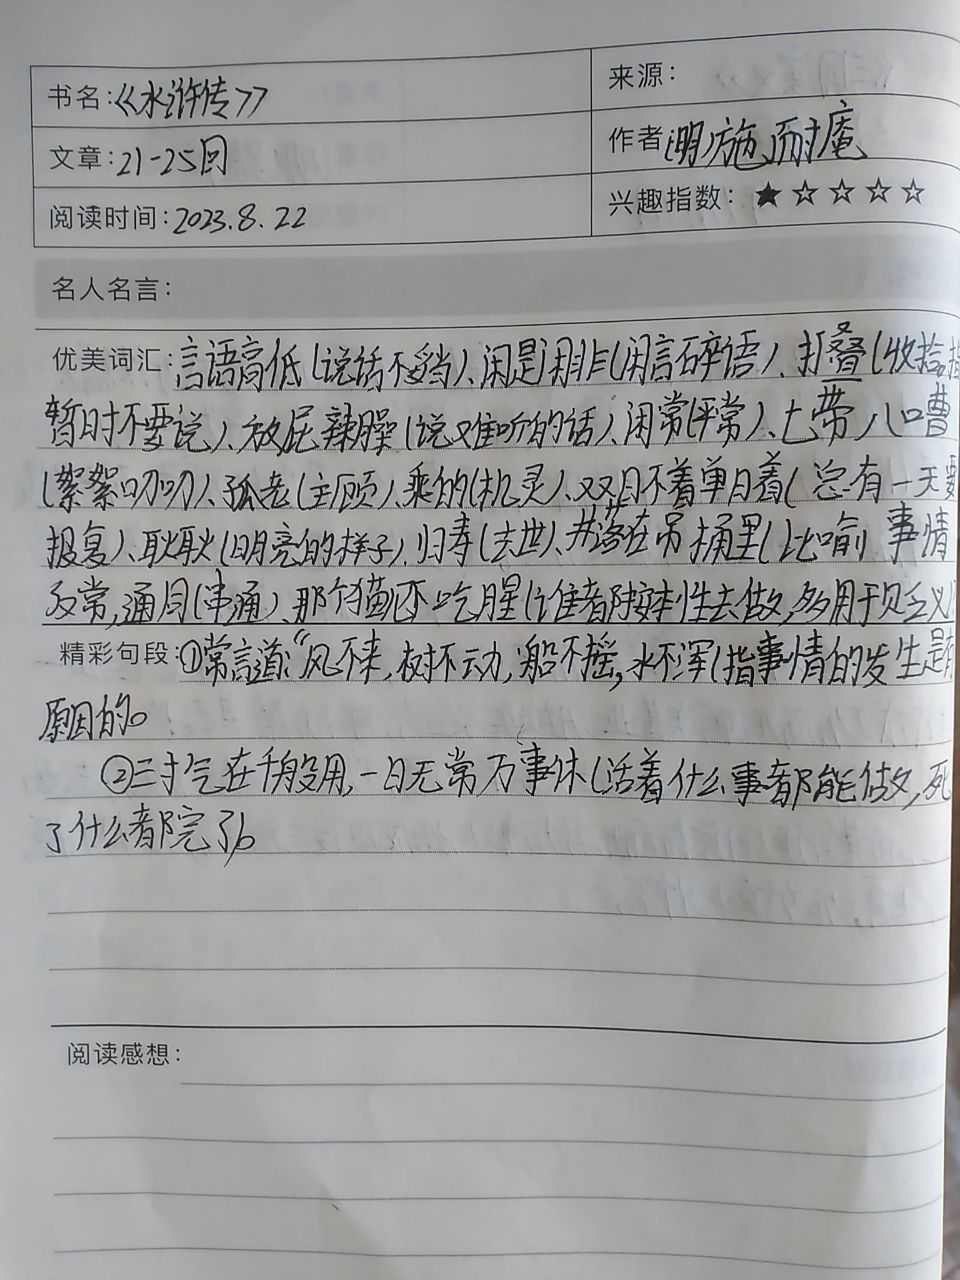 书名:《水浒传》
来源:
文章:21-25回
作者(明)施耐庵
阅读时间:2023.8.22
兴趣指数:★☆☆☆☆
名人名言:
优美词汇:言语高低(说话不妥当)、闲是闲非(闲言碎语)、打叠(收拾,指
暂时不要说)、放屁辣臊(说难听的话)、闲常(平常)、七带八嘈
(絮絮叨叨)、孤老(主顾)、乘的(机灵)、双日不着单日着(总有一天要
报复)、耿耿(明亮的样子)、归寿(去世)、井落在吊桶里(比喻事情
反常,通同(串通)、那个猫儿不吃腥(谁都按本性去做,多用于贬义)
精彩句段:①常言道:“风不来,树不动,船不摇,水不浑(指事情的发生是有
原因的。
②三寸气在千般用,一日无常万事休(活着什么事都能做,死
了什么都完了)。
阅读感想: